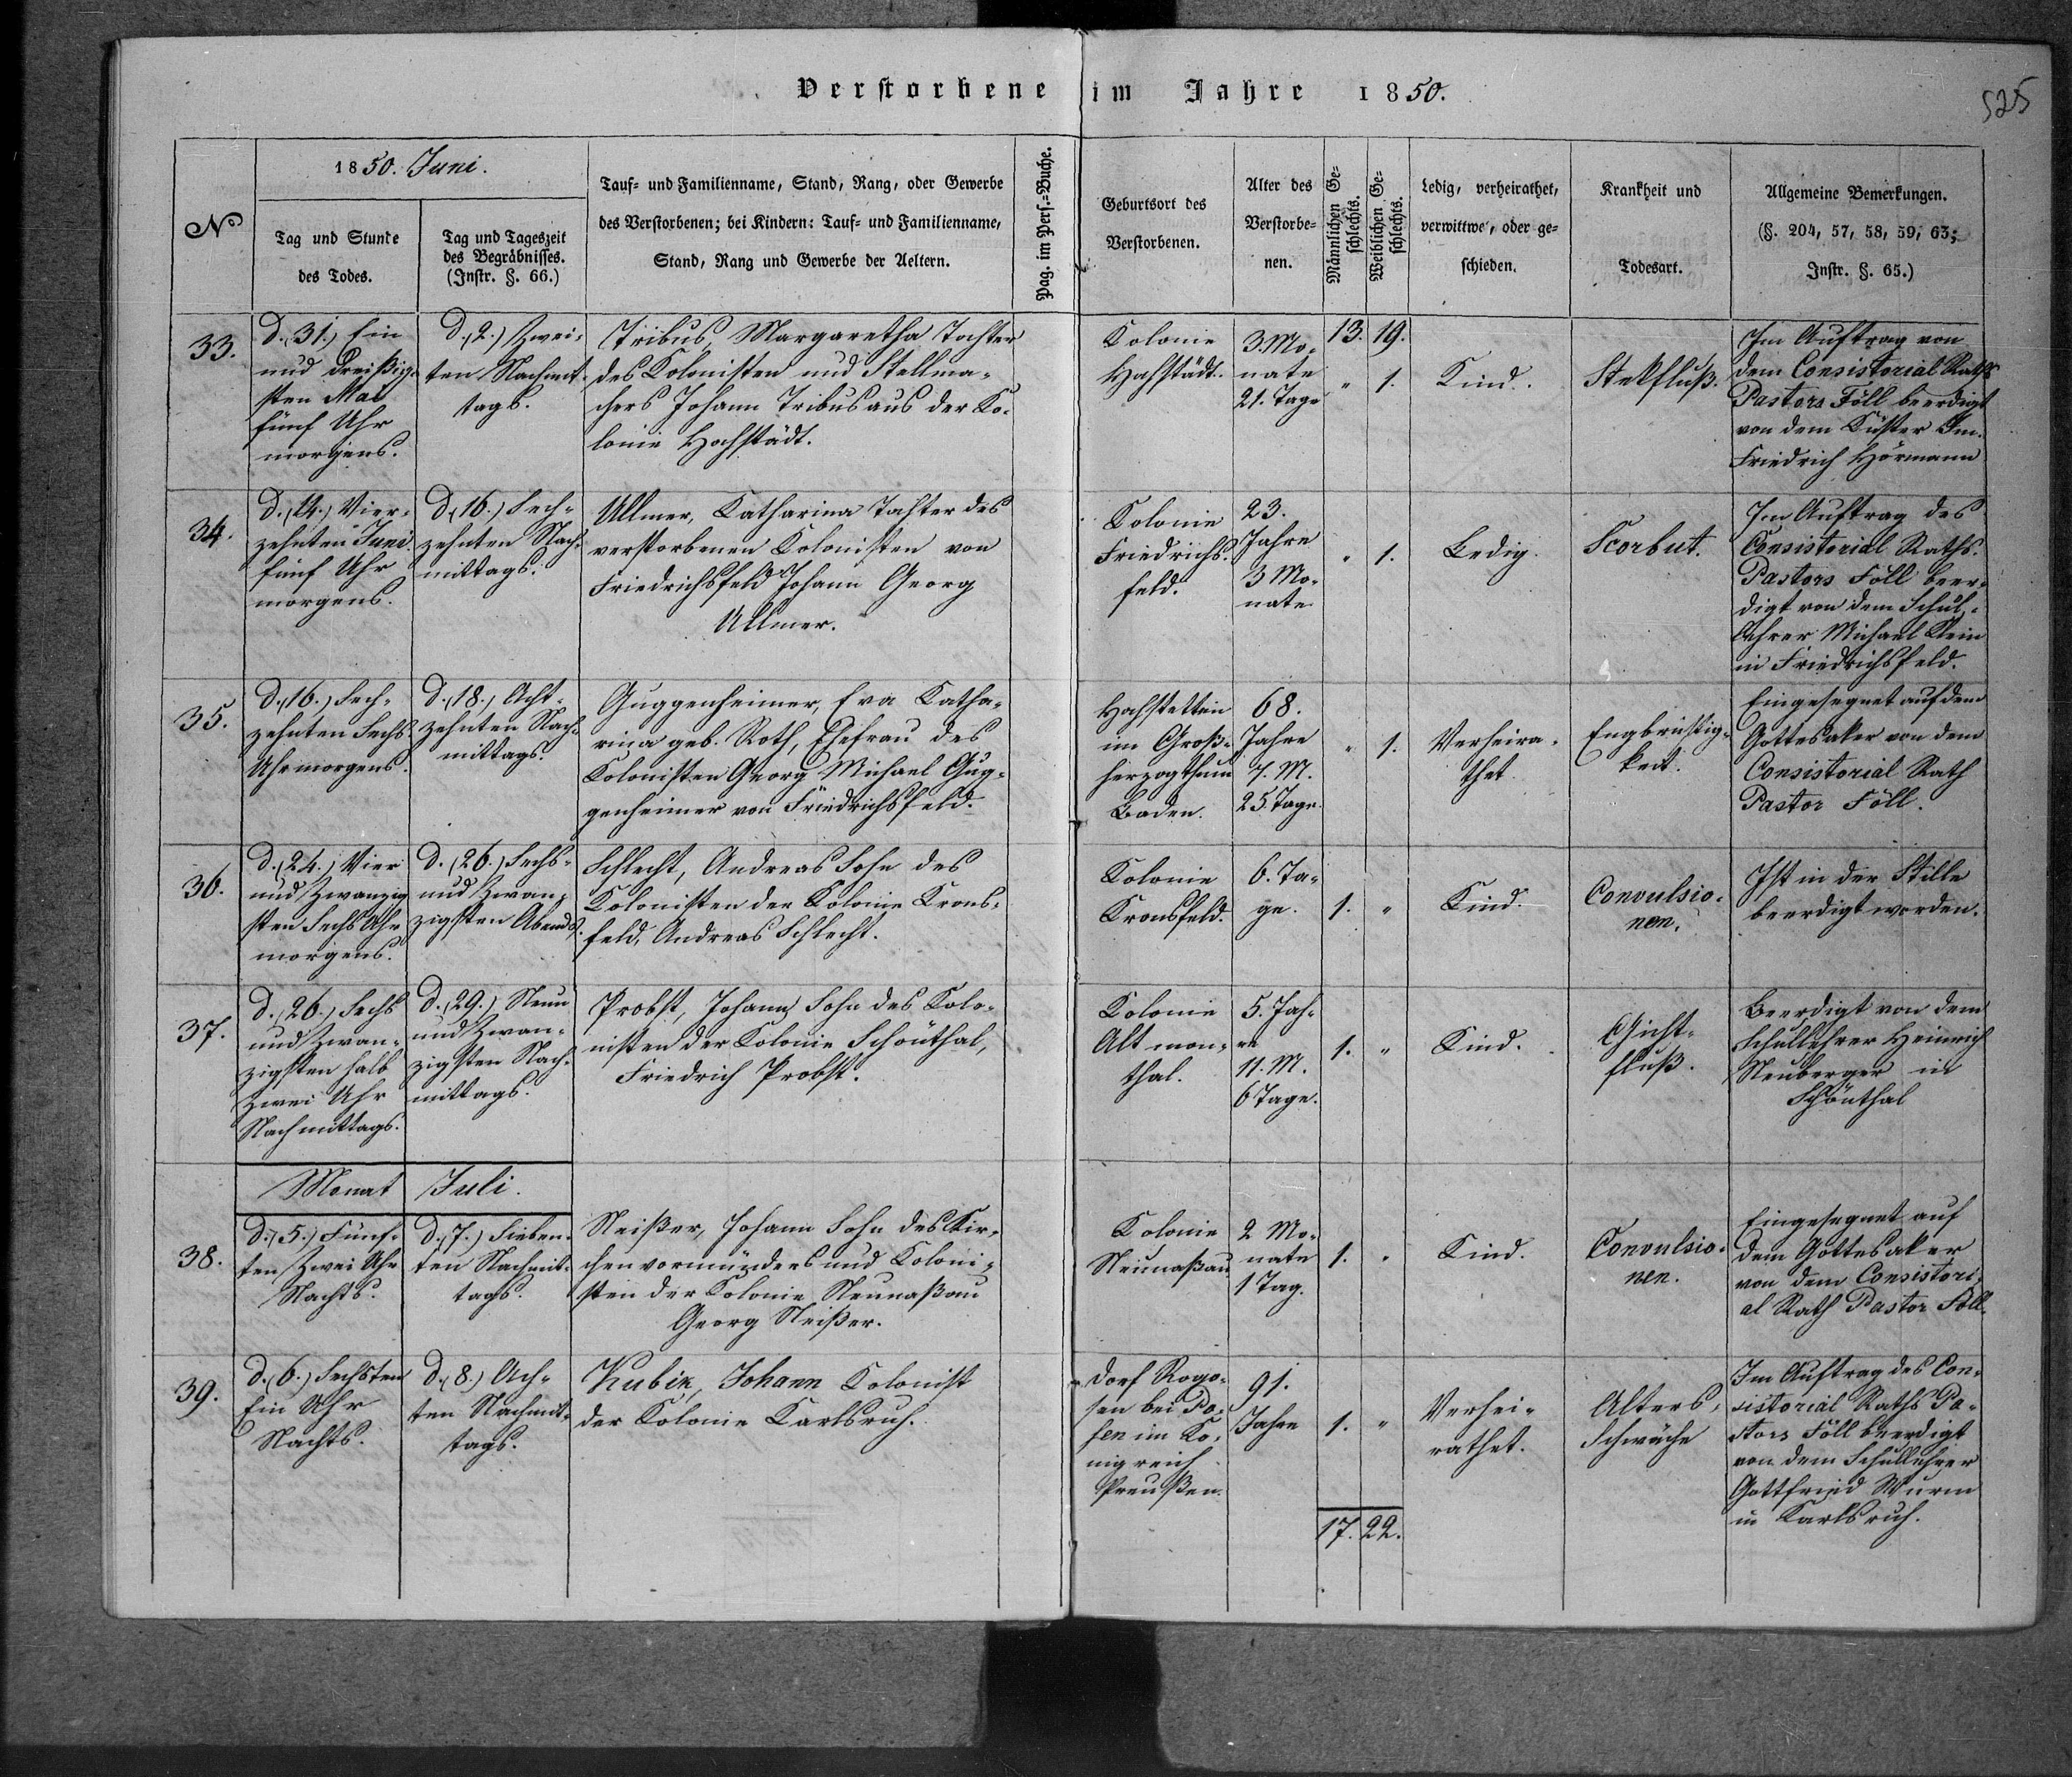 Verstorbene im Jahre 1850.
525
№
1850. Juni.
Tag und Stunde
des Todes.
Tag und Tageszeit
des Begräbnisses.
(Instr. §. 66.)
Tauf- und Familienname, Stand, Rang, oder Gewerbe
des Verstorbenen; bei Kindern: Tauf- und Familienname,
Stand, Rang und Gewerbe der Aeltern.
Pag. im Pers.-Buche.
Geburtsort des
Verstorbenen.
Alter des
Verstorbe-
nen.
Männlichen Ge-
schlechts.
Weiblichen Ge-
schlechts.
Ledig, verheirathet,
verwittwet, oder ge-
schieden.
Krankheit und
Todesart.
Allgemeine Bemerkungen.
(§. 204, 57, 58, 59, 63;
Instr. §. 65.)
33.
d. (31.) Ein
und dreißig-
sten Mai
fünf Uhr
morgens.
d. (2.) Zwei-
ten Nachmit-
tags.
Tribus, Margaretha Tochter
des Kolonisten und Stellma-
chers Johann Tribus aus der Ko-
lonie Hochstädt.
Kolonie
Hochstädt.
3. Mo-
nate
21. Tage
13. 19.
" 1.
Kind.
Stekfluß.
Im Auftrag von
dem Consistorial Raths
Pastors Föll beerdigt
von dem Küster Im.
Friedrich Hörmann
34.
d. (14.) Vier-
zehnten Juni
fünf Uhr
morgens.
d. (16.) Sech-
zehnten Nach-
mittags.
Ullmer, Catharina Tochter des
verstorbenen Kolonisten von
Friedrichsfeld Johann Georg
Ullmer.
Kolonie
Friedrichs-
feld.
23.
Jahre
3 Mo-
nate
" 1.
Ledig.
Scorbut.
Im Auftrag des
Consistorial Raths.
Pastors Föll beer-
digt von dem Schul-
lehrer Michael Klein
in Friedrichsfeld.
35.
d. (16.) Sech-
zehnten Sechs
Uhr morgens.
d. (18.) Acht-
zehnten Nach-
mittags.
Guggenheimer, Eva Catha-
rina geb. Roth, Ehefrau des
Kolonisten Georg Michael Gug-
genheimer von Friedrichsfeld.
Hochstetten
im Groß-
herzogthum
Baden.
68.
Jahre
7. M.
25. Tage.
" 1.
Verheira-
thet.
Engbrüstig-
keit.
Eingesegnet auf dem
Gottesaker von dem
Consistorial Rath
Pastor Föll.
36.
d. (24.) Vier
und Zwanzig
sten Sechs Uhr
morgens.
d. (26.) Sechs-
und Zwan-
zigsten Abends.
Schlecht, Andreas Sohn des
Kolonisten der Kolonie Krons-
feld, Andreas Schlecht.
Kolonie
Kronsfeld.
6. Ta-
ge.
1. "
Kind
Convulsio-
nen.
Ist in der Stille
beerdigt worden.
37.
d. (26.) Sechs
und Zwan-
zigsten halb
Zwei Uhr
Nachmittags.
d. (29.) Neun
und Zwan-
zigsten Nach-
mittags.
Probst, Johann Sohn des Kolo-
nisten der Kolonie Schönthal,
Friedrich Probst.
Kolonie
Alt mon-
thal.
5. Jah-
re
11. M.
6 Tage.
1. "
Kind.
Gicht-
fluß.
Beerdigt von dem
Schullehrer Heinrich
Neuberger in
Schönthal
Monat Juli.
38.
d. (5.) Fünf-
ten Zwei Uhr
Nachts.
d. (7.) Sieben-
ten Nachmit-
tags.
Neißer, Johann Sohn des Kir-
chenvormünders und Koloni-
sten der Kolonie Neunaßau
Georg Neißer.
Kolonie
Neunaßau.
2 Mo-
nate
1 Tag.
1. "
Kind.
Convulsio-
nen.
Eingesegnet auf
dem Gottesaker
von dem Consistori-
al Rath Pastor Föll.
39.
d. (6.) Sechsten
Ein Uhr
Nachts.
d. (8.) Ach-
ten Nachmit-
tags.
Kubik, Johann Kolonist
der Kolonie Karlsruh.
Dorf Rogo-
sen bei Po-
sen im Kö-
nigreich
Preußen.
91.
Jahre
1. "
Verhei-
rathet.
Alters-
Schwäche
Im Auftrag des Con-
sistorial Raths Pa-
stors Föll beerdigt
von dem Schullehrer
Gottfried Wurm
in Karlsruh.
17. 22.